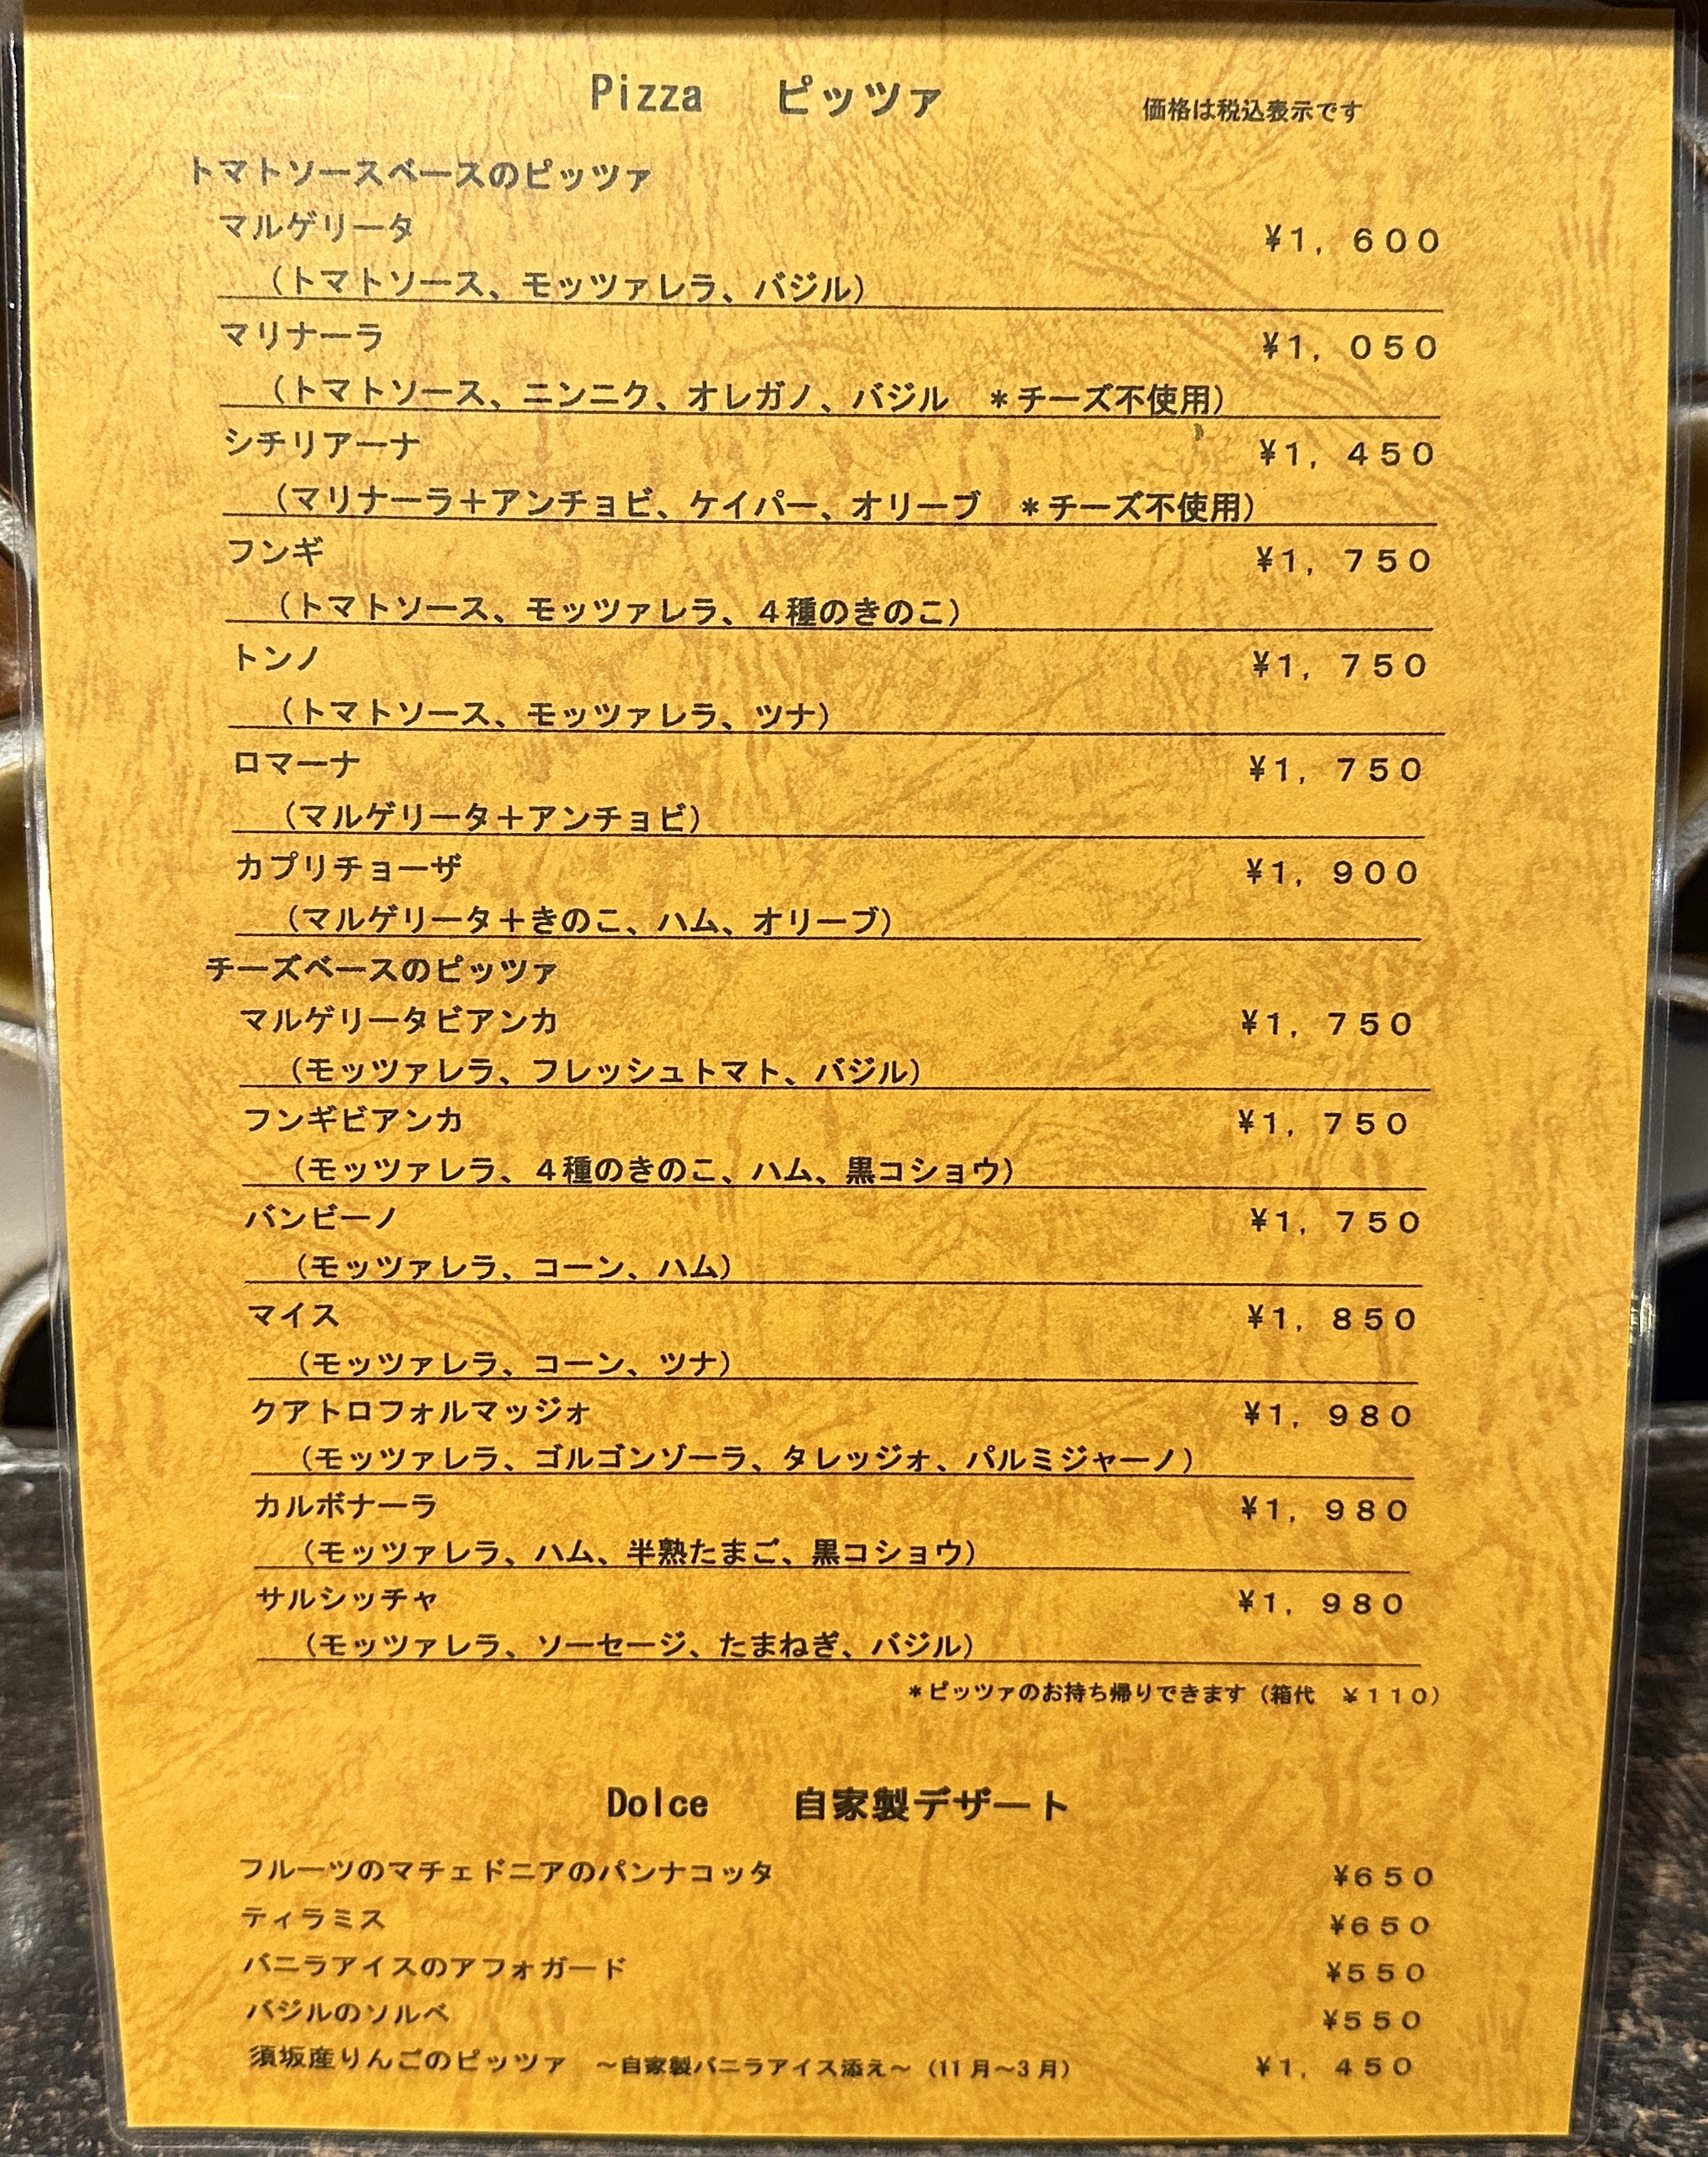 Pizza　ピッツァ　価格は税込表示です
トマトソースベースのピッツァ
マルゲリータ　¥1，600
（トマトソース、モッツァレラ、バジル）
マリナーラ　¥1，050
（トマトソース、ニンニク、オレガノ、バジル　＊チーズ不使用）
シチリアーナ　¥1，450
（マリナーラ＋アンチョビ、ケイパー、オリーブ　＊チーズ不使用）
フンギ　¥1，750
（トマトソース、モッツァレラ、４種のきのこ）
トンノ　¥1，750
（トマトソース、モッツァレラ、ツナ）
ロマーナ　¥1，750
（マルゲリータ＋アンチョビ）
カプリチョーザ　¥1，900
（マルゲリータ＋きのこ、ハム、オリーブ）
チーズベースのピッツァ
マルゲリータビアンカ　¥1，750
（モッツァレラ、フレッシュトマト、バジル）
フンギビアンカ　¥1，750
（モッツァレラ、４種のきのこ、ハム、黒コショウ）
バンビーノ　¥1，750
（モッツァレラ、コーン、ハム）
マイス　¥1，850
（モッツァレラ、コーン、ツナ）
クアトロフォルマッジォ　¥1，980
（モッツァレラ、ゴルゴンゾーラ、タレッジォ、パルミジャーノ）
カルボナーラ　¥1，980
（モッツァレラ、ハム、半熟たまご、黒コショウ）
サルシッチャ　¥1，980
（モッツァレラ、ソーセージ、たまねぎ、バジル）
＊ピッツァのお持ち帰りできます（箱代　¥110）
Dolce　自家製デザート
フルーツのマチェドニアのパンナコッタ　¥650
ティラミス　¥650
バニラアイスのアフォガード　¥550
バジルのソルベ　¥550
須坂産りんごのピッツァ　～自家製バニラアイス添え～（11月～3月）　¥1，450